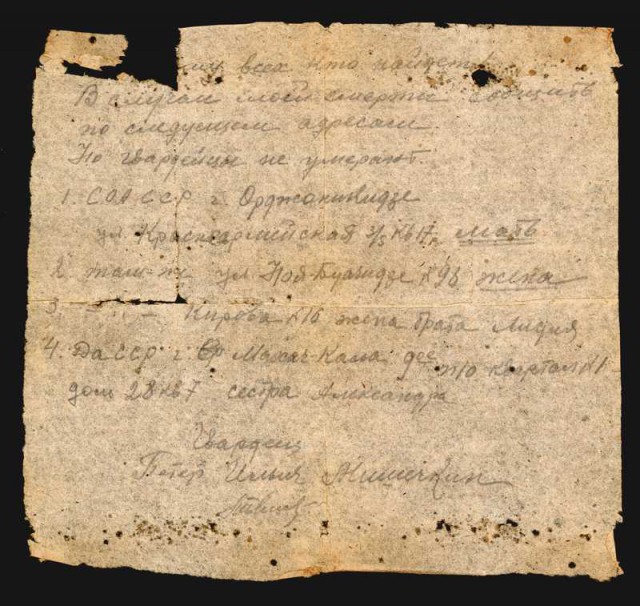 всех кто найдет
В случаи моей смерти сообщить
по следущем адресам.
Но гвардейцы не умерают.
1. СОАССР г. Орджоникидзе
ул Красногармейская 3/5 кв 17, мать
2. там-же ул Ной-Буачидзе №98 жена
3. — " — Кирова №16 жена брата Лидия
4. ДаССР г. Махач-Кала квартал №1
дом 28 кв 7 сестра Александра
Гвардеец
Петр Ильич